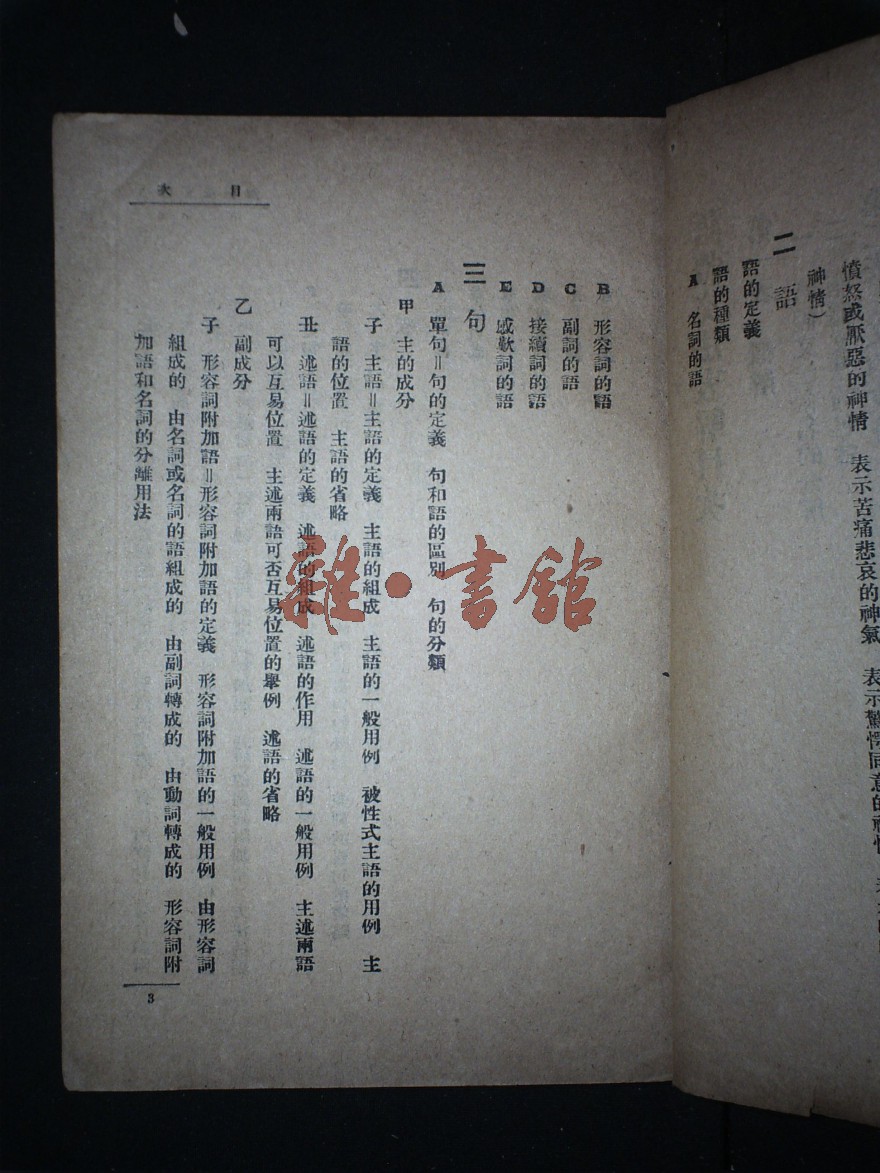 憤怒或厭惡的神情　表示苦痛悲哀的神氣　表示驚愕同意的神情
神情）
二　語
語的定義
語的種類
A　名詞的語
目次
B　形容詞的語
C　副詞的語
D　接續詞的語
E　感歎詞的語
三　句
A　單句＝句的定義　句和語的區別　句的分類
甲　主的成分
子　主語＝主語的定義　主語的組成　主語的一般用例　被性式主語的用例　主
語的位置　主語的省略
丑　述語＝述語的定義　述語的組成　述語的作用　述語的一般用例　主述兩語
可以互易位置　主述兩語可否互易位置的舉例　述語的省略
乙　副成分
子　形容詞附加語＝形容詞附加語的定義　形容詞附加語的一般用例　由形容詞
組成的　由名詞或名詞的語組成的　由副詞轉成的　由動詞轉成的　形容詞附
加語和名詞的分離用法
3
雜·書館